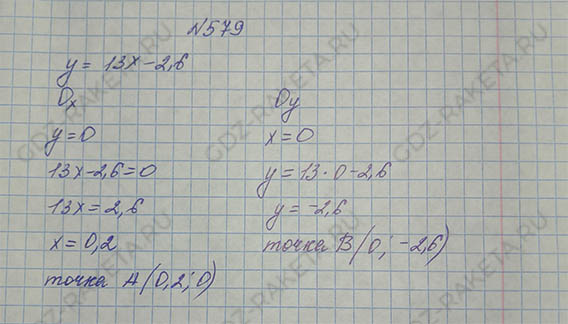 N579
y = 13x - 2,6
Ox
y = 0
13x - 2,6 = 0
13x = 2,6
x = 0,2
точка A (0,2; 0)
Oy
x = 0
y = 13 · 0 - 2,6
y = -2,6
точка B (0; -2,6)
GDZ-RAKETA.RU